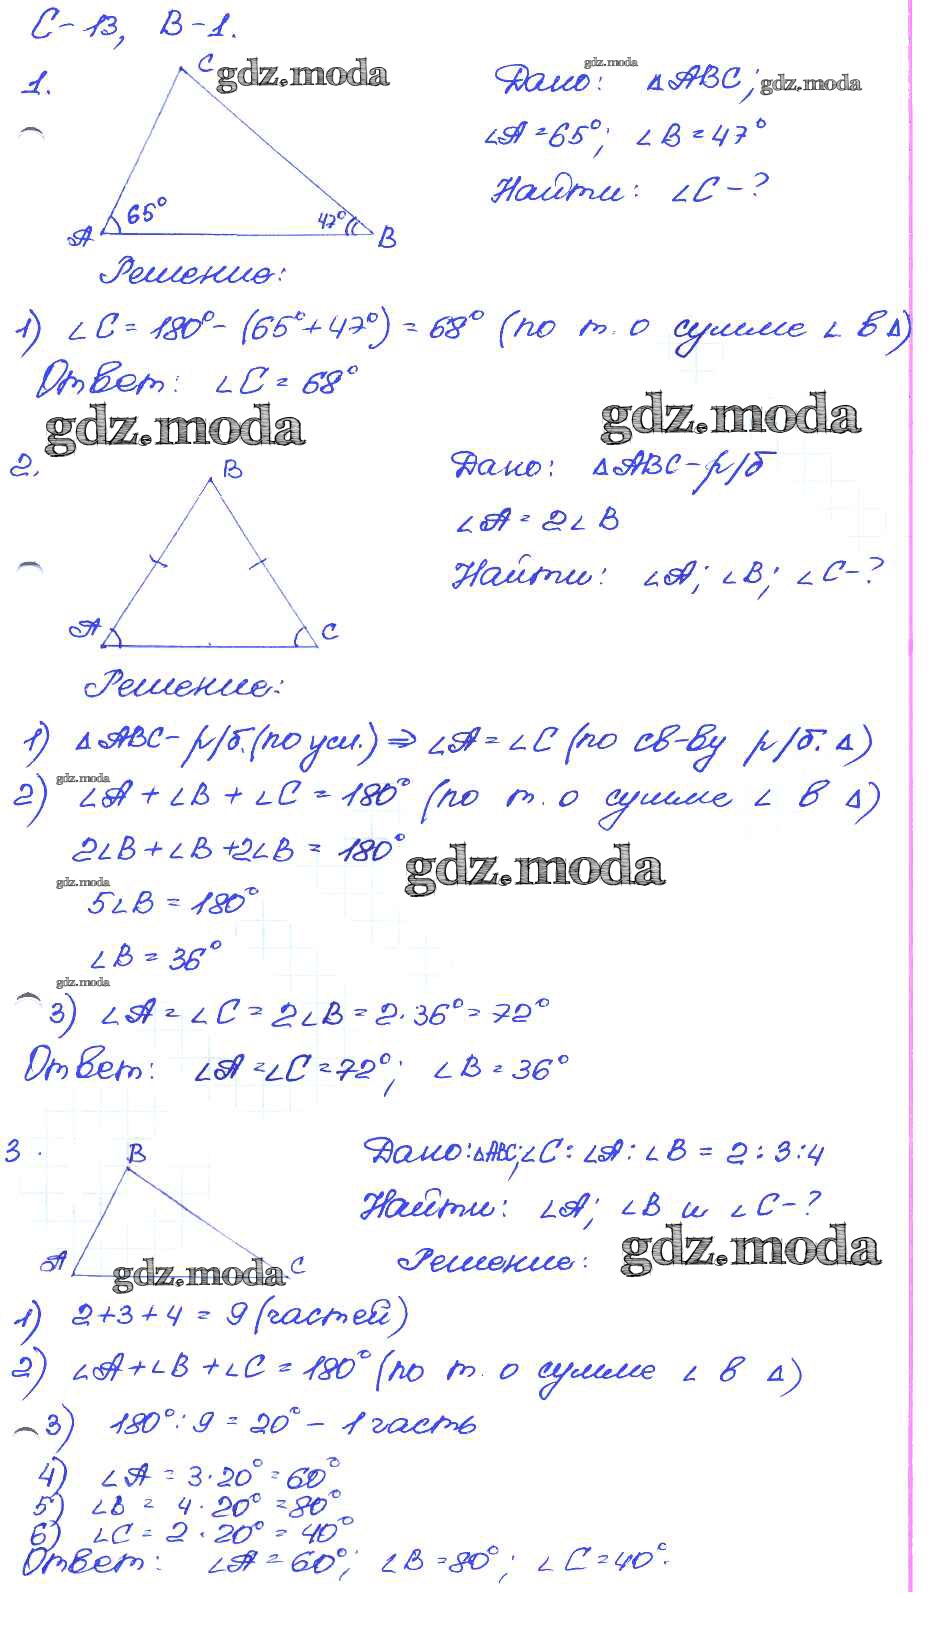 С-13, В-1.
1. C gdz.moda
gdz.moda
Дано: ΔABC; gdz.moda
∠A = 65°; ∠B = 47°
Найти: ∠C - ?
A 65° 47° B
Решение:
1) ∠C = 180° - (65° + 47°) = 68° (по т. о сумме ∠ в Δ)
Ответ: ∠C = 68°
gdz.moda gdz.moda
2. B
Дано: ΔABC - р/б
∠A = 2∠B
Найти: ∠A; ∠B; ∠C - ?
A C
Решение:
1) ΔABC - р/б. (по усл.) ⇒ ∠A = ∠C (по св-ву р/б. Δ)
gdz.moda
2) ∠A + ∠B + ∠C = 180° (по т. о сумме ∠ в Δ)
2∠B + ∠B + 2∠B = 180°
gdz.moda
gdz.moda
5∠B = 180°
∠B = 36°
gdz.moda
3) ∠A = ∠C = 2∠B = 2·36° = 72°
Ответ: ∠A = ∠C = 72°; ∠B = 36°
3. B
Дано: ΔABC; ∠C : ∠A : ∠B = 2 : 3 : 4
Найти: ∠A; ∠B и ∠C - ?
A gdz.moda C
Решение: gdz.moda
1) 2 + 3 + 4 = 9 (частей)
2) ∠A + ∠B + ∠C = 180° (по т. о сумме ∠ в Δ)
3) 180° : 9 = 20° - 1 часть
4) ∠A = 3·20° = 60°
5) ∠B = 4·20° = 80°
6) ∠C = 2·20° = 40°
Ответ: ∠A = 60°; ∠B = 80°; ∠C = 40°.